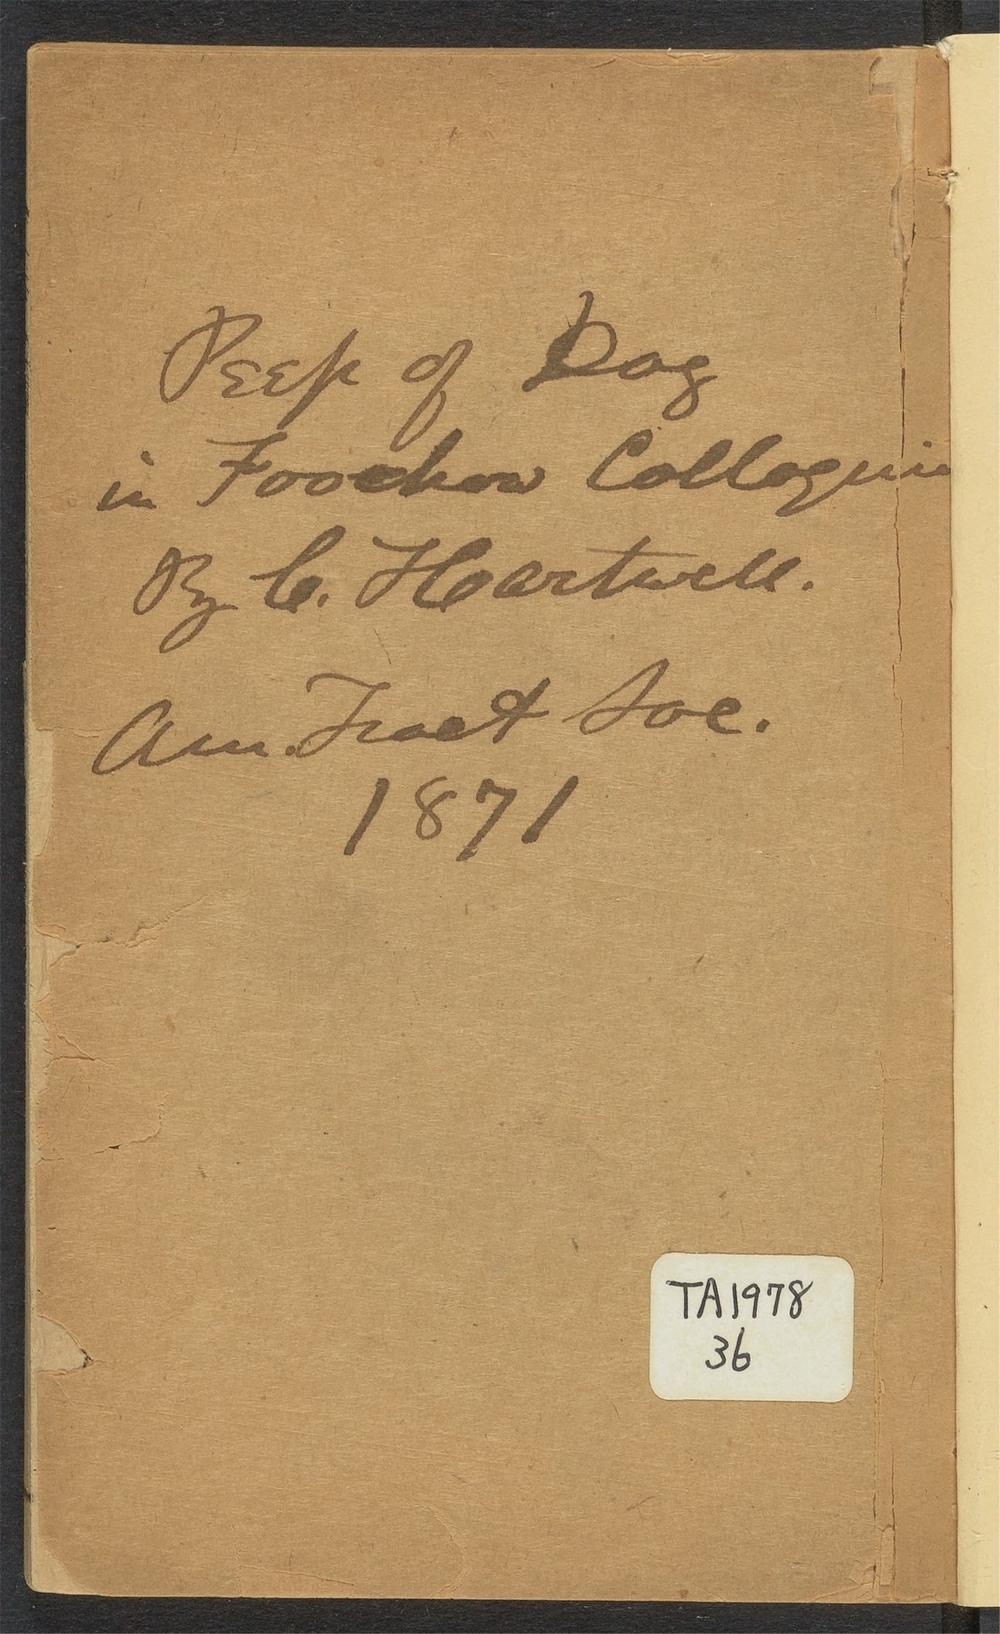 Peep of Dag
in Foochow Colloquia
By C. Hartwell.
Am. Tract Soc.
1871
TA1978
36